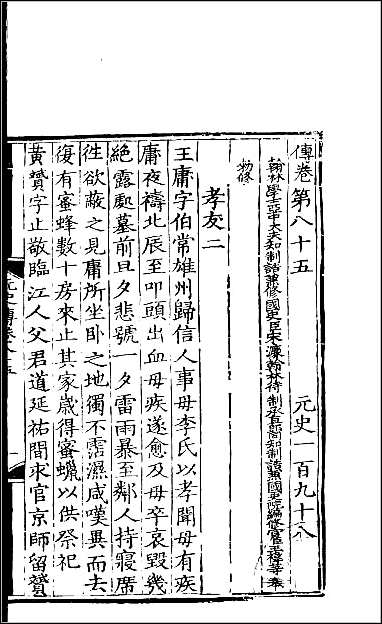 傳卷第八十五　元史一百九十八
翰林學士亞中大夫知制誥兼修國史臣宋濂翰林待制承直郎同知制誥兼國史院編修官臣王禕等奉
勑修
孝友二
王庸字伯常雄州歸信人事母李氏以孝聞母有疾
庸夜禱北辰至叩頭出血母疾遂愈及母卒哀毀幾
絶露處墓前旦夕悲號一夕雷雨暴至鄰人持寢席
徃欲蔽之見庸所坐卧之地獨不霑濕咸嘆異而去
復有蜜蜂數十房來止其家歲得蜜蠟以供祭祀
黄贇字止敬臨江人父君道延祐間求官京師留贇